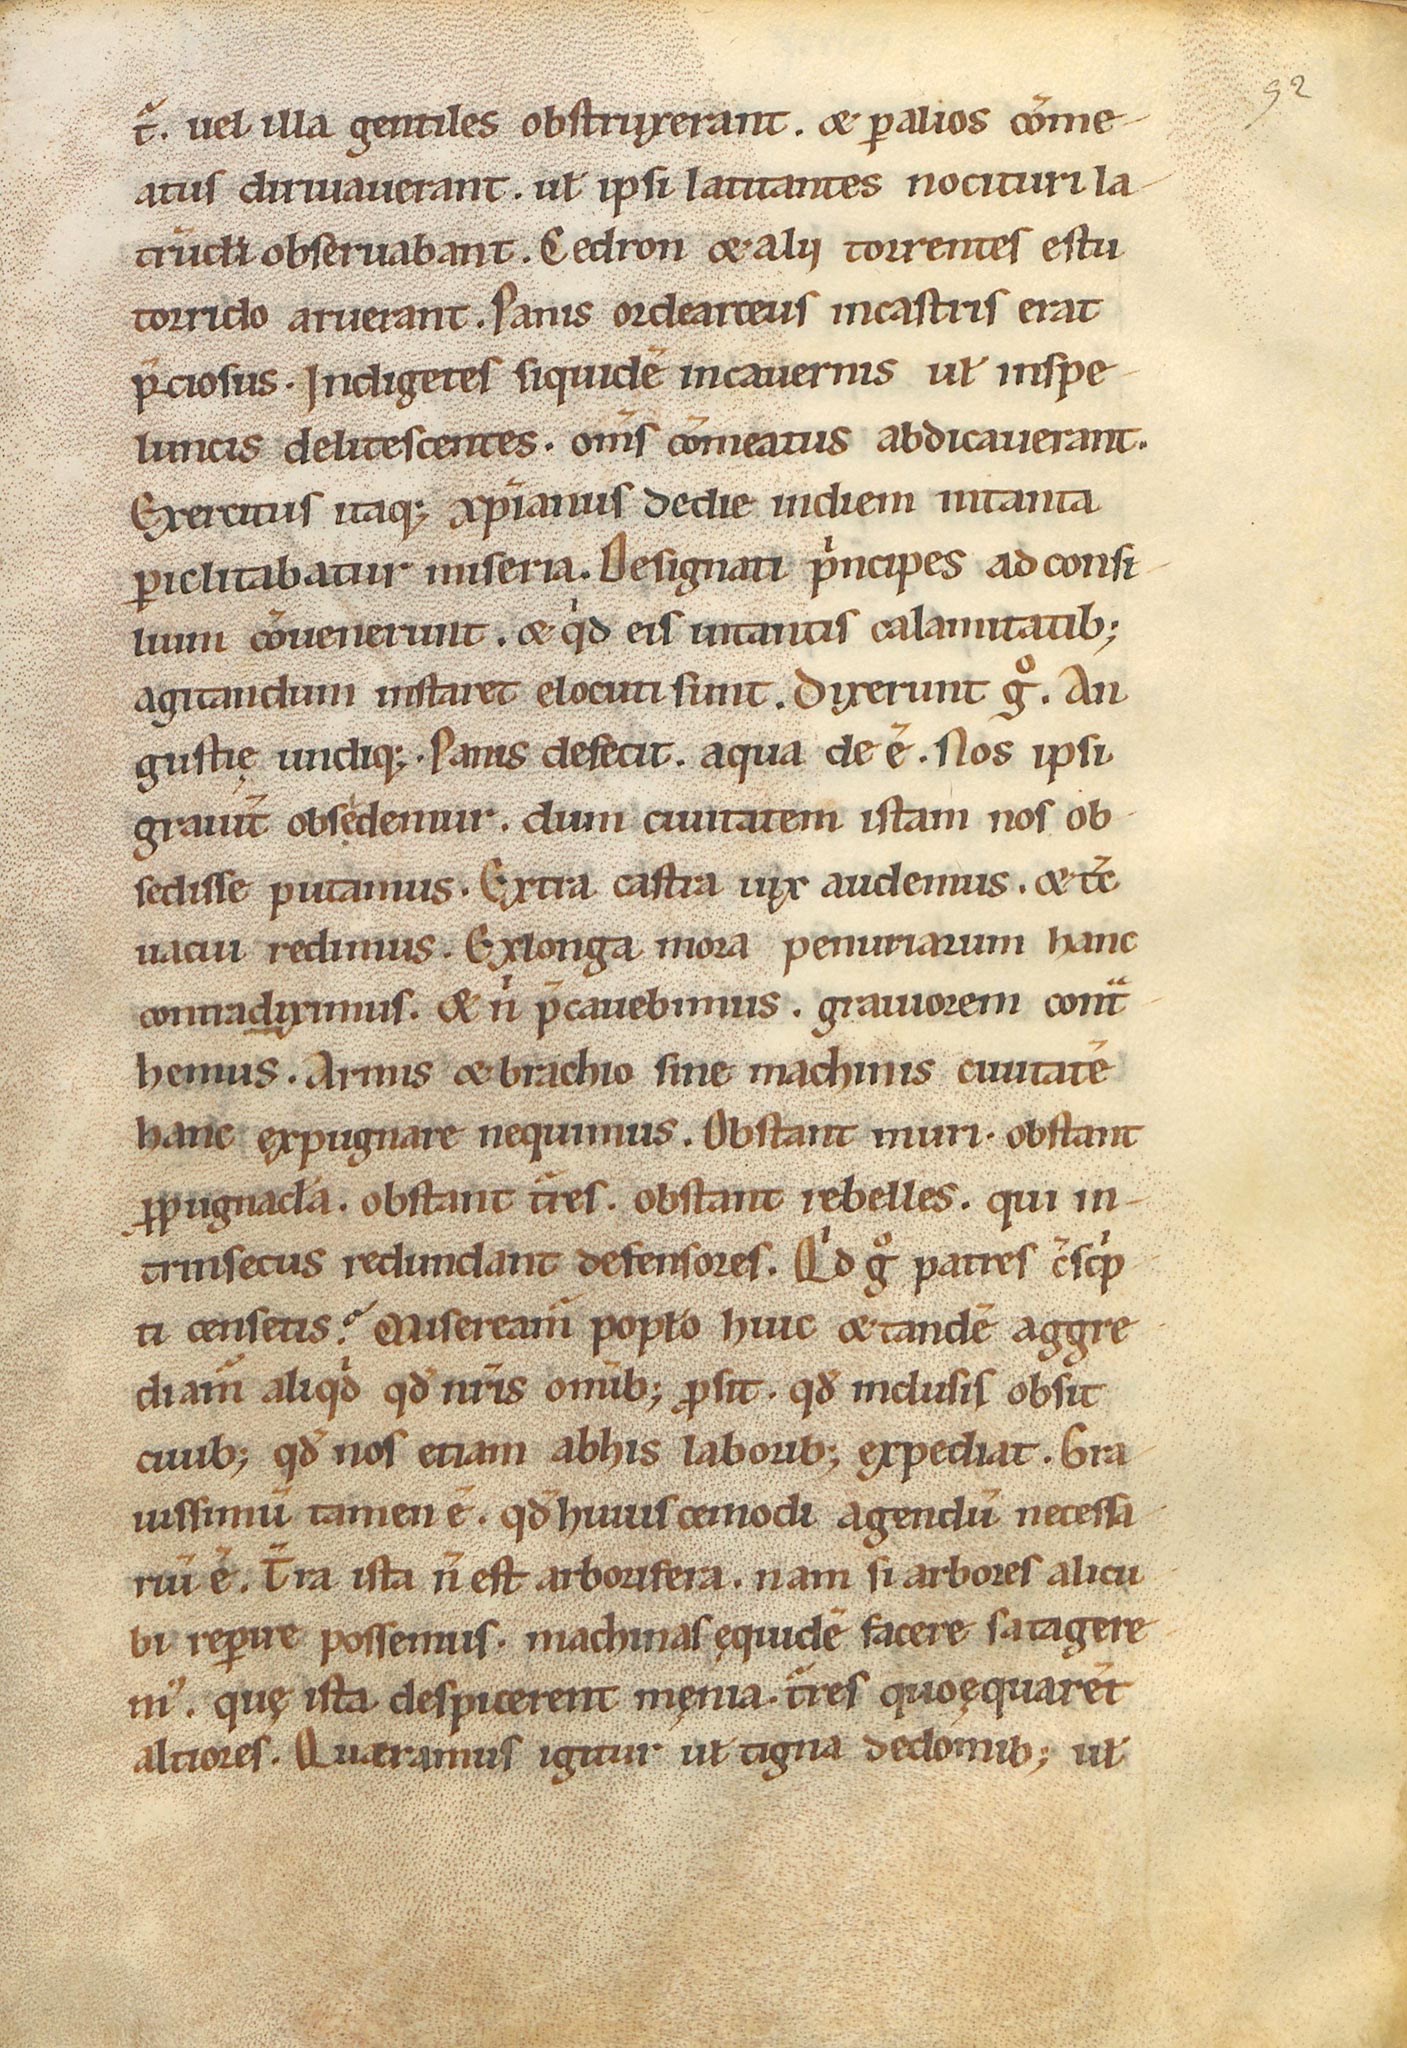 92
t̃. uel illa gentiles obstruxerant. & ꝑ alios cōme-
atus diriuauerant. ut̵ ipsi latitantes nocituri la-
trūcli obseruabant. Cedron & alij torrentes estu
torrido aruerant. Panis ordearceus incastris erat
p̄ciosus. Indigetes siquidē incauernis ut̵ inspe-
luncis delitescentes. om̄s cōmeatus abdicauerant.
Exercitus itaq; xp̄ianus dedie indiem intanta
ꝑiclitabatur miseria. Designati pͥncipes ad consi-
lium cōuenerunt. & qͥd eis intantis calamitatib;
agitandum instaret elocuti sunt. Dixerunt gͦ. An
gustię undiq;. Panis defecit. aqua de ē. Nos ipsi
grauit̃ obsędemur. dum ciuitatem istam nos ob-
sedisse putamus. Extra castra uix audemus. & tc̄
uacui redimus. Exlonga mora penuriarum hanc
contradiximus. & nͥ p̄cauebimus. grauiorem cont̃-
hemus. Armis & brachio sine machinis ciuitatē
hanc expugnare nequimus. Obstant muri. obstant
ꝓpugnacla. obstant t̃res. obstant rebelles. qui in-
trinsecus redundant defensores. Qͥd gͦ patres c̄scͥp
ti censetis? Miseream̃ poplo huic & tandē aggre-
diam̃ aliqͥd qd̃ nr̄is om̄ib; ꝓsit. qd̃ inclusis obsit
ciuib; qd̃ nos etiam abhis laborib; expediat. Gra-
uissimū tamen ē. qd̃ huiuscemodi agendū necessa-
riū ē. T̄ra ista n̄ est arborifera. nam si arbores alicu
bi reꝑire possemus. machinas ęquidē facere satagere-
m᾽. quę ista despicerent męnia. t̃res quoęquarēt
altiores. Quæramus igitur ut̵ tigna dedomib; ut̵